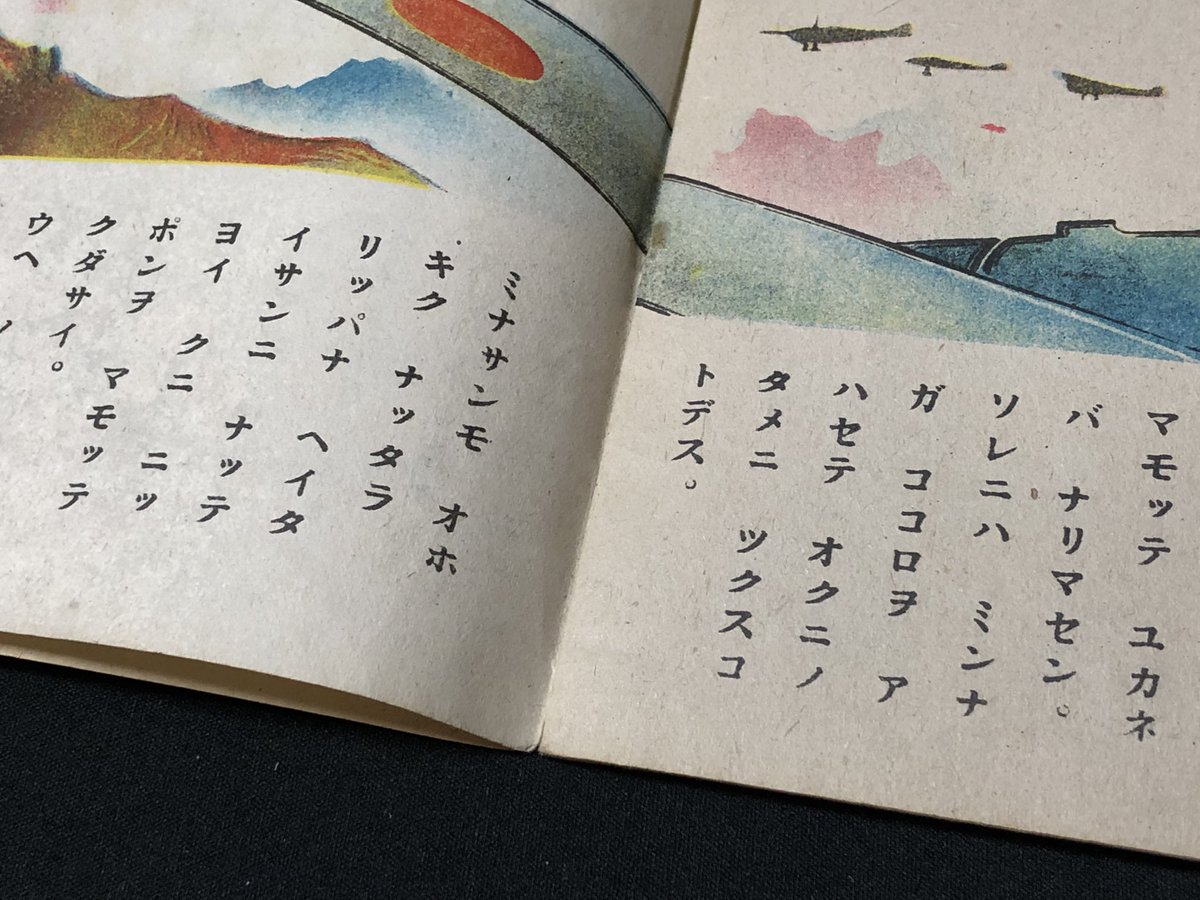 マモッテ ユカネ
バ ナリマセン。
ソレニハ ミンナ
ガ ココロヲ ア
ハセテ オクニノ
タメニ ツクスコ
トデス。
ミナサンモ オホ
キク ナッタラ
リッパナ ヘイタ
イサンニ ナッテ
ヨイ クニ ニッ
ポンヲ マモッテ
クダサイ。
ウヘ ノ